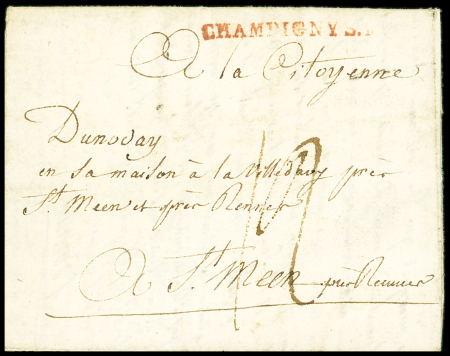 CHAMPIGNY S.
A la Citoyenne
Dunoday
en sa maison à la Villedavy près
St. Meen et près Rennes
A St. Meen près Rennes